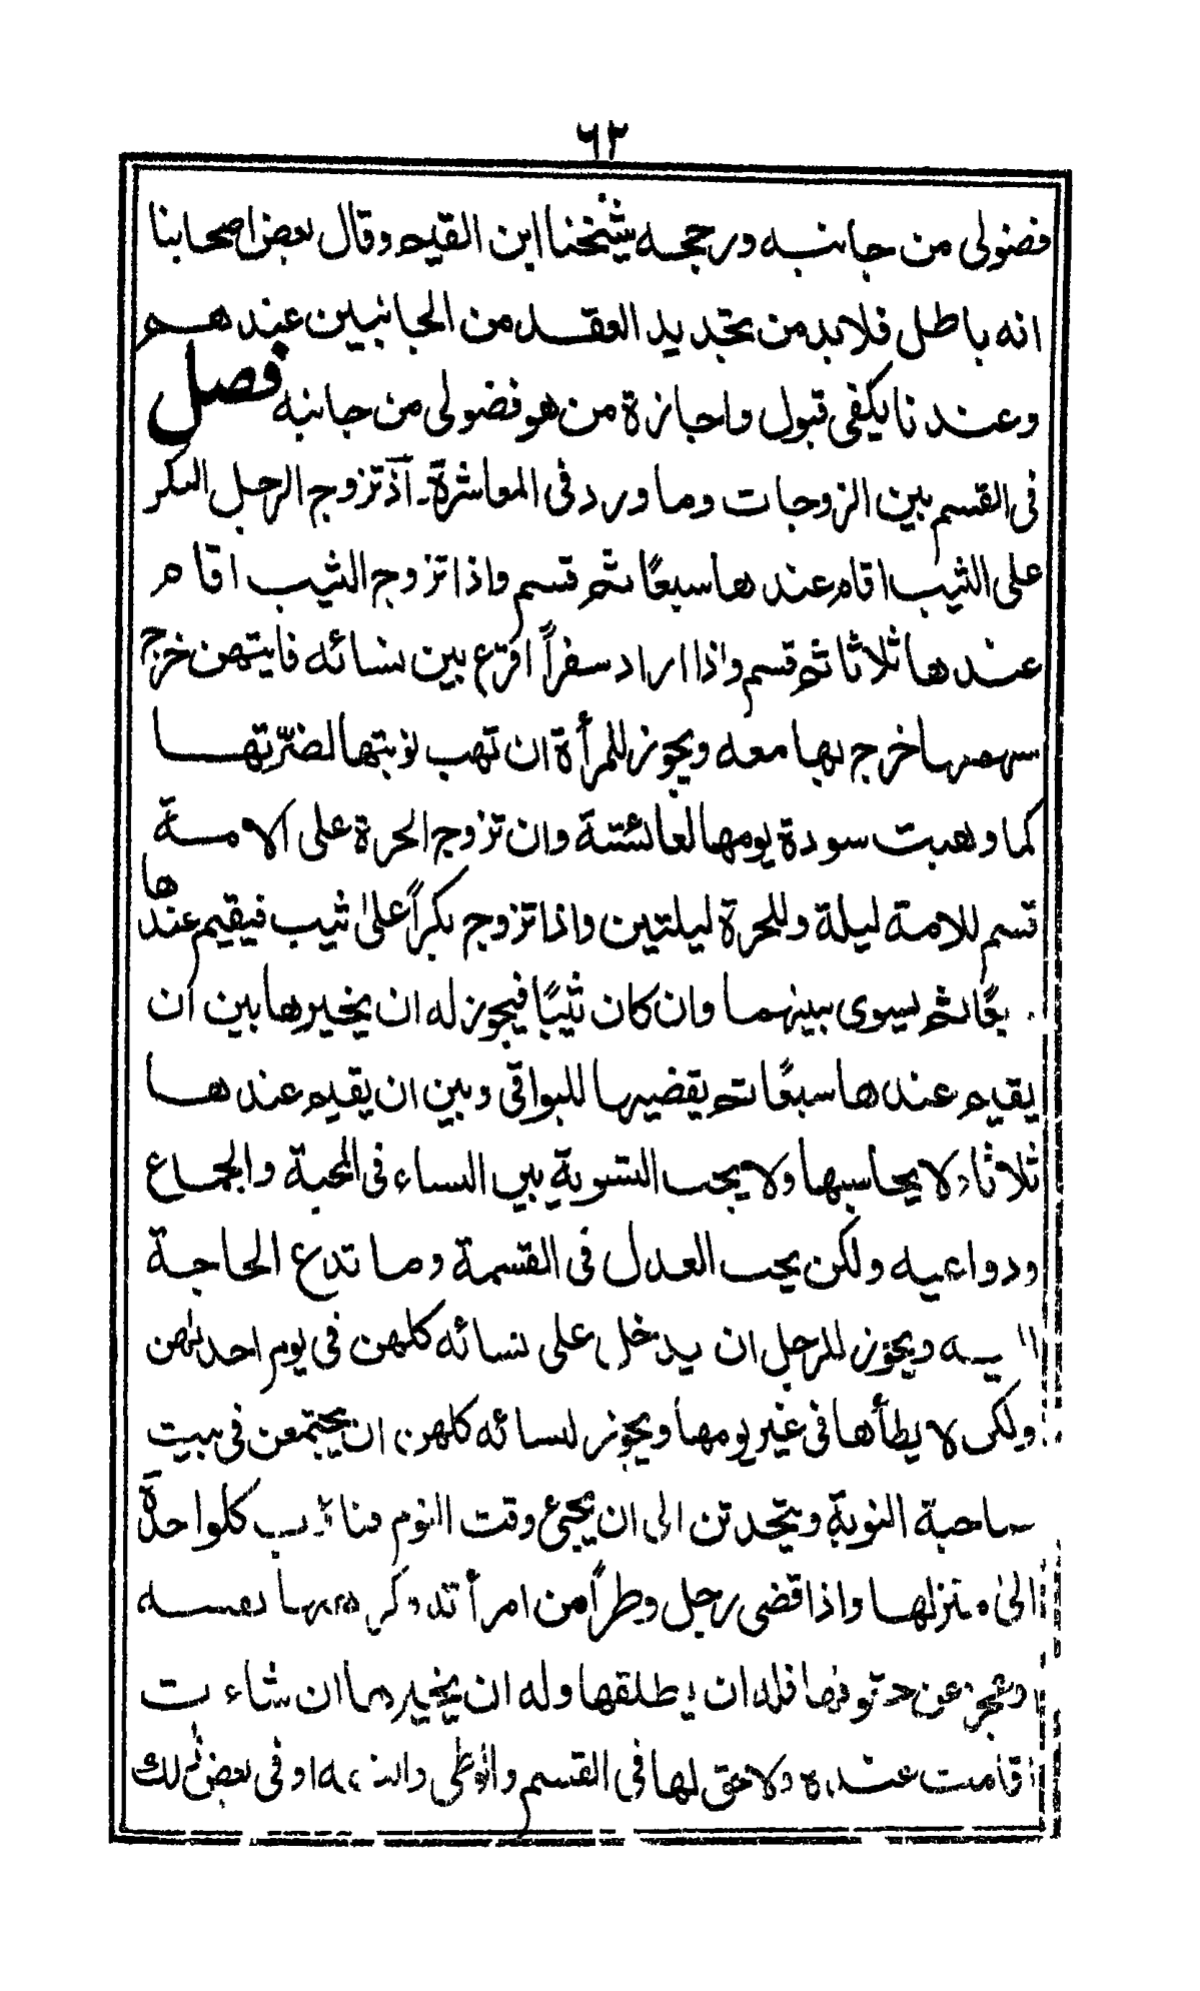 ٦٣
فضولى من جانبه ورجحه شيخنا ابن القيم وقال بعض اصحابنا
انه باطل فلا بد من تجديد العقد من الجانبين عندهم
وعندنا يكفى قبول واجازة من هو فضولى من جانبه فصل
فى القسم بين الزوجات وما ورد فى المعاشرة۔ اذ تزوج الرجل البكر
على الثيب اقام عندها سبعًا ثم قسم واذا تزوج الثيب اقام
عندها ثلاثا ثم قسم واذا اراد سفراً اقرع بين نسائه فايتهن خرج
سهمها خرج بها معه ويجوز للمرأة ان تهب نوبتها لضرّتها
كما وهبت سودة يومها لعائشة وان تزوج الحرة على الامة
قسم للامة ليلة وللحرة ليلتين واذا تزوج بكراً على ثيب فيقيم عندها
بعًا ثم يسوى بينهما وان كان ثيبًا فيجوز له ان يخيرها بين ان
يقيم عندها سبعًا ثم يقضيها للبواقى وبين ان يقيم عندها
ثلاثا ولا يحاسبها ولا يجب التسوية بين النساء فى المحبة والجماع
ودواعيه ولكن يجب العدل فى القسمة وما تدع الحاجة
اليه ويجوز للرجل ان يدخل على نسائه كلهن فى يوم احدلهن
ولكن لا يطأها فى غير يومها ويجوز لنسائه كلهن ان يجتمعن فى بيت
صاحبة النوبة ويتحدثن الى ان يجئ وقت النوم كلواحدة
الى منزلها واذا قضى رجل وطراً من امرأته وكره نفسه
وعجز عن حقوقها فله ان يطلقها وله ان يخيرها ان شاءت
اقامت عنده ولا حق لها فى القسم والوطى او فى بعض ذلك